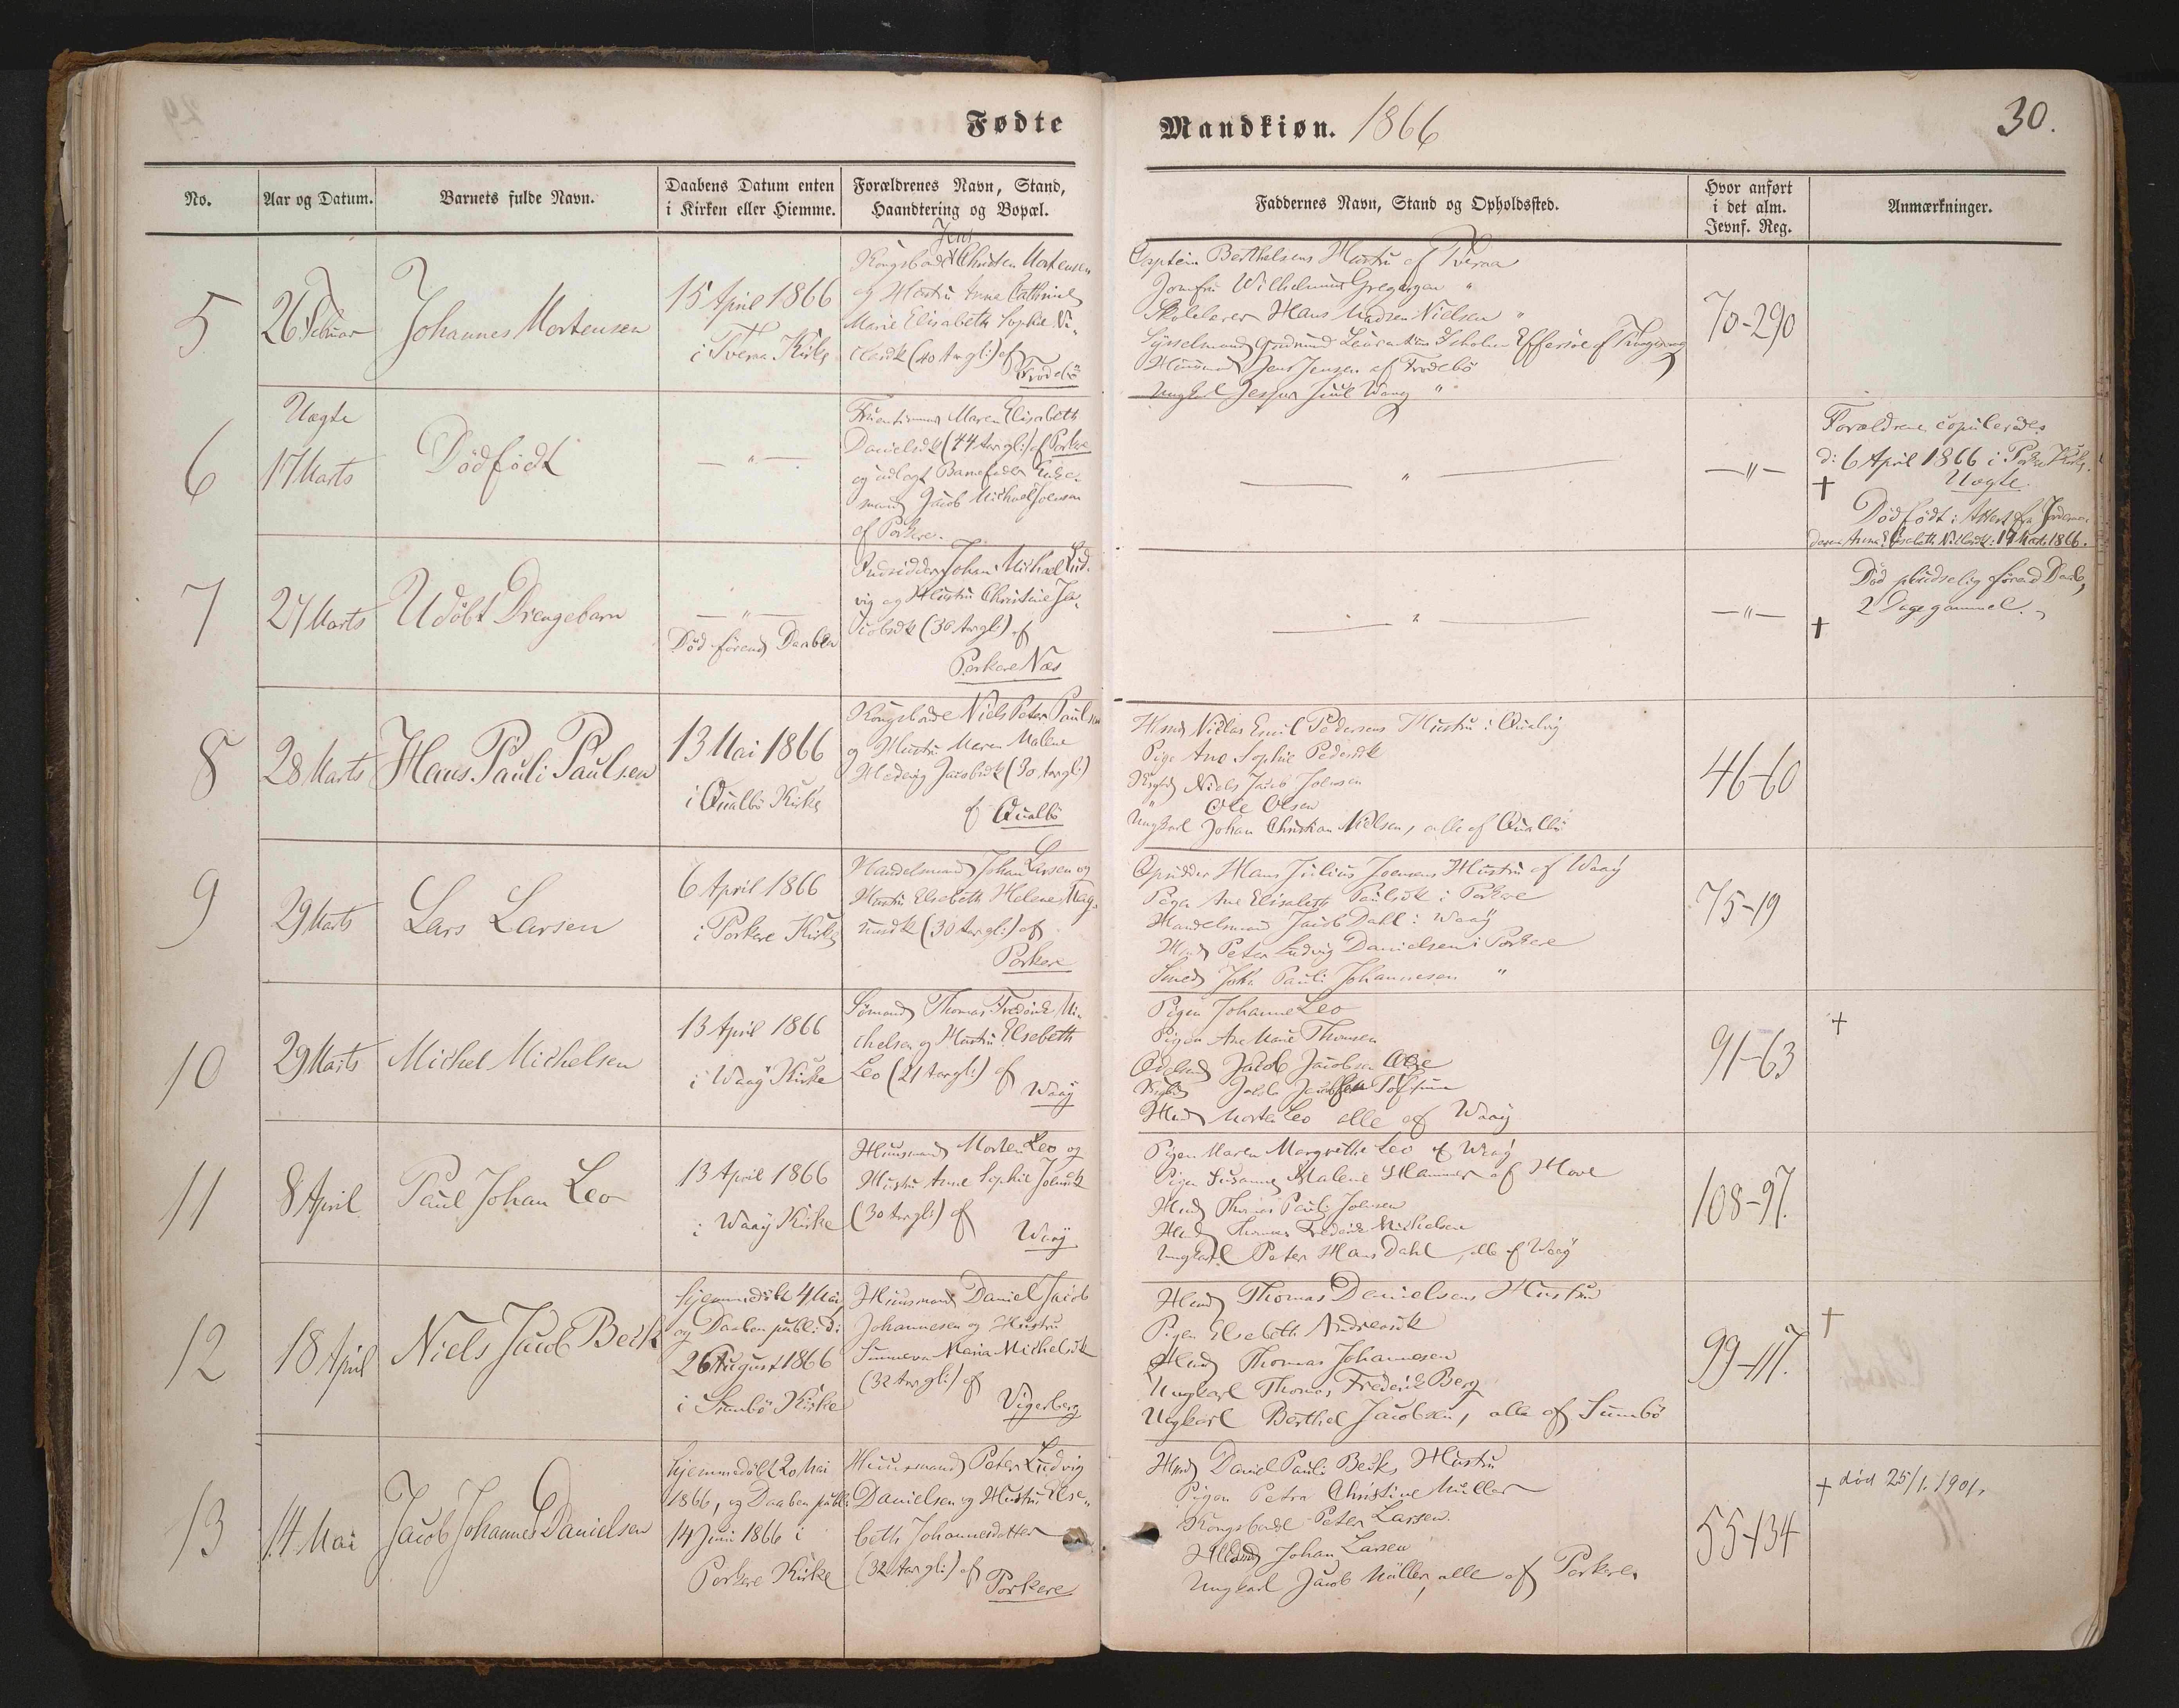 Fødte
Mandkiøn. 1866
30.
No.
Aar og Datum.
Barnets fulde Navn.
Daabens Datum enten
i Kirken eller Hiemme.
Forældrenes Navn, Stand,
Haandtering og Bopæl.
Faddernes Navn, Stand og Opholdssted.
Hvor anført
i det alm.
Jevnf. Reg.
Anmærkninger.
5
26 Februar
Johannes Mortensen
15 April 1866
i Tveraa Kirke
Jens
Kongsbonde Christen Mortensen
og Hustru Anna Cathrine
Marie Elisabeth Sophie Ni-
clasdt (40 Aar gl:) af
Frodebö
Captein Berthelsens Hustru af Tveraa
Jomfru Wilhelmine Gregersen "
Skolelærer Hans Madsen Nielsen "
Sysselmand Effersöe af
Huusmand Jens Jensen af Frodebö
Ungkarl Jesper Juul Wang "
70-290
6
Uægte
17 Marts
Dödfödt
— " —
Fruentimmer Maren Elisabeth
Danielsdt (44 Aar gl:) af Porkere
og udlagt Barnefader Enke-
mand Jacob Michael Joensen
af Porkere.
— " —
— " —
Forældrene copulerede
d: 6 April 1866 i Porkere Kirke.
+ Uægte.
Dödfödt: Attest fra Jordemo-
deren Anna Elisabeth Niclasdt: 17 Marts 1866.
7
27 Marts
Udöbt Drengebarn
— " —
Död förend Daaben
Indsidder Johan Michael Lud-
vig og Hustru Christine Ja-
cobsdt (30 Aar gl:) af
Porkere Næs
— " —
— " —
Död pludselig förend Daab,
2 Dage gammel.
+
8
28 Marts
Hans Pauli Paulsen
13 Mai 1866
i Qualbö Kirke
Kongsbonde Niels Peter Paulsen
og Hustru Maren Malene
Hedevig Jacobsdt (30 Aar gl:)
af Qualbö
Hmd Niclas Emil Pedersens Hustru i Qualvig
Pige Ane Sophie Pedersdt
Niels Jacob Joensen
" Ole Olsen
Ungkarl Johan Christian Nielsen, alle af Qualbö
46-60
9
29 Marts
Lars Larsen
6 April 1866
i Porkere Kirke
Handelsmand Johan Larsen og
Hustru Elsebeth Helene Mag-
nusdt (30 Aar gl:) af
Porkere
Opsidder Hans Julius Joensens Hustru af Waag
Pigen Ane Elisabeth Paulsdt i Porkere
Handelsmand Jacob Dahl i Waag
Hmd Peter Ludvig Danielsen i Porkere
Smed John Pauli Johannesen "
75-19
10
29 Marts
Michel Michelsen
13 April 1866
i Waag Kirke
Sömand Thomas Frederik Mi-
chelsen og Hustru Elsebeth
Leo (21 Aar gl:) af
Waag
Pigen Johanne Leo
Pigen Ane Marie Thomsen
Jacob Jacobsen
Jacob Jacobsen
Hmd Morten Leo alle af Waag
91-63
+
11
8 April
Paul Johan Leo
13 April 1866
i Waag Kirke
Huusmand Morten Leo og
Hustru Anne Sophie Joensdt
(30 Aar gl:) af
Waag
Pigen Maren Margrethe Leo af Waag
Pigen Susanne Malene Hammer af Hove
Hmd Thomas Pauli Joensen
Hmd Thomas Frederik Michelsen
Ungkarl Peter Hans Dahl, alle af Waag
108-97.
12
18 April
Niels Jacob Beck
Hjemmedöbt 4 Mai
og Daaben publ: d:
26 August 1866
i Sumbö Kirke
Huusmand Daniel Jacob
Johannesen og Hustru
Sunneva Maria Michelsdt
(32 Aar gl:) af
Vigerberg
Hmd Thomas Danielsens Hustru
Pigen Elsebeth Andreasdt
Hmd Thomas Johannesen
Ungkarl Thomas Frederik Berg
Ungkarl Berthel Jacobsen, alle af Sumbö
99-117.
+
13
14 Mai
Jacob Johannes Danielsen
Hjemmedöbt 20 Mai
1866, og Daaben publ:
14 Juni 1866 i
Porkere Kirke
Huusmand Peter Ludvig
Danielsen og Hustru Else-
beth Johannesdatter
(32 Aar gl:) af
Porkere
Hmd Daniel Pauli Becks Hustru
Pigen Petra Christine Müller
Kongsbonde Peter Larsen
Johan Larsen
Ungkarl Jacob Müller, alle af Porkere
55-134
+ död 25/1. 1901.